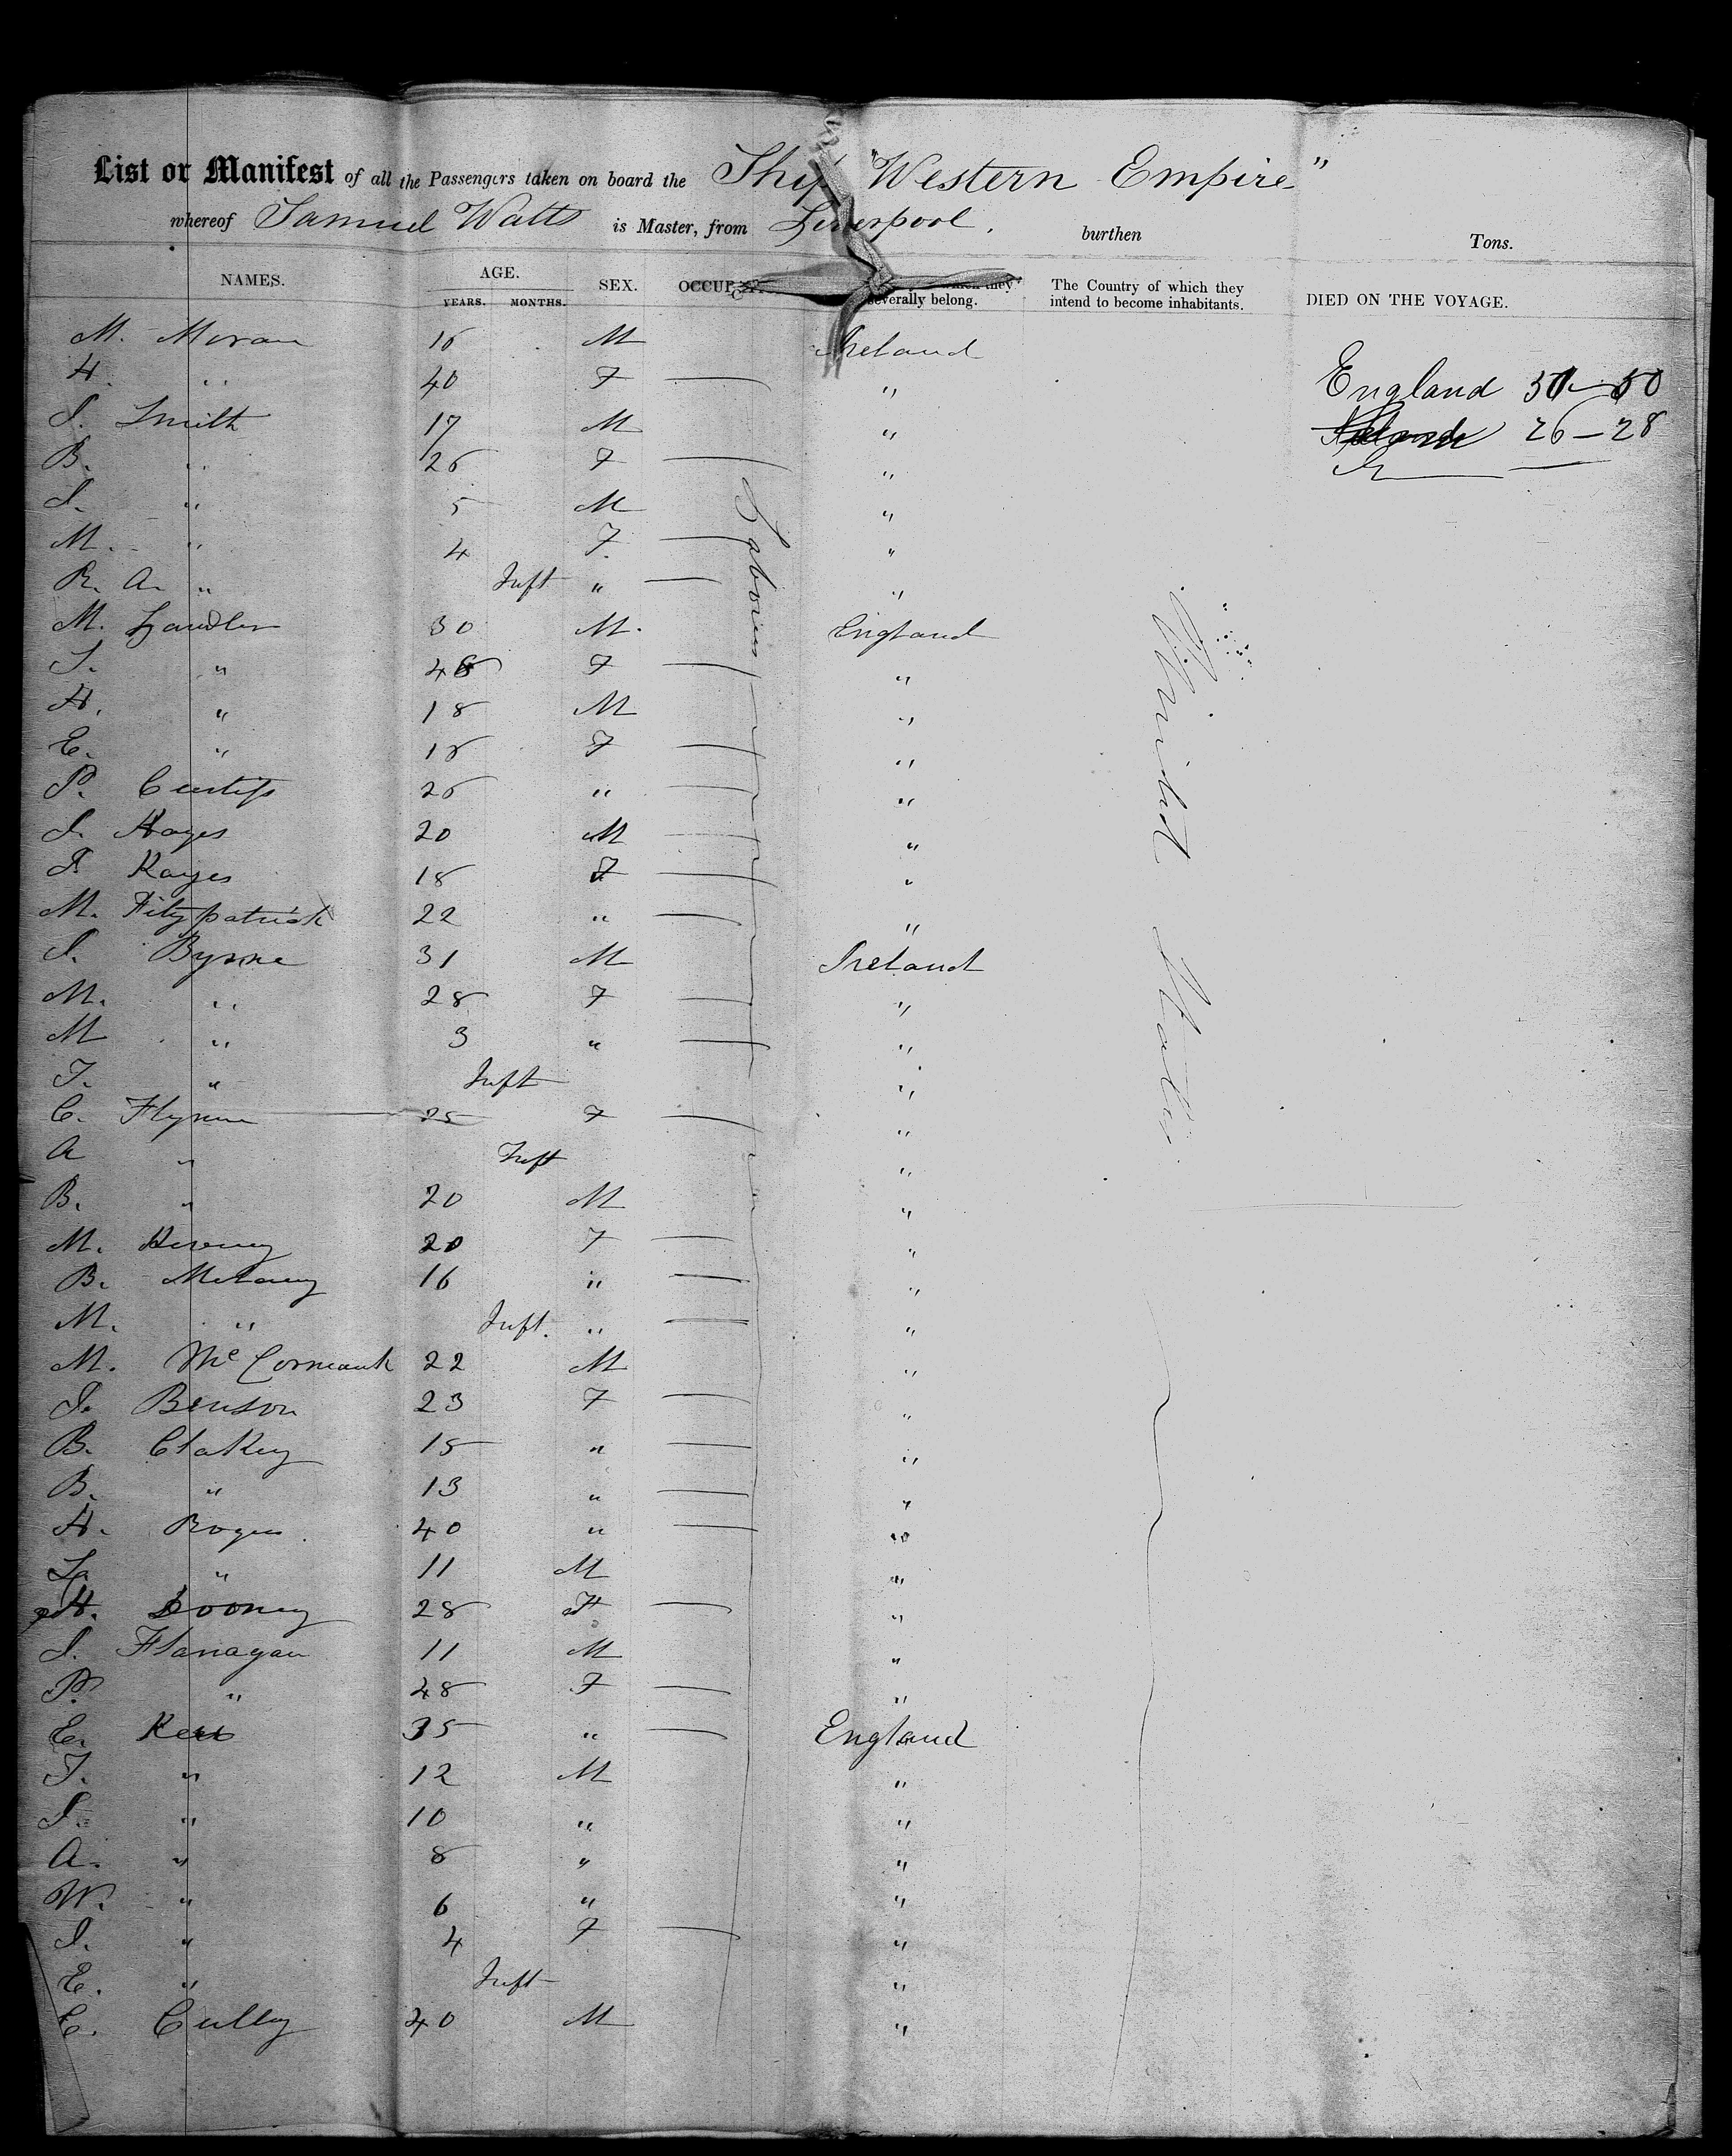 List or Manifest of all the Passengers taken on board the Ship "Western Empire"
whereof Samuel Watts is Master, from Liverpool. burthen Tons.
NAMES. AGE. YEARS. MONTHS. SEX. OCCUP which they severally belong. The Country of which they intend to become inhabitants. DIED ON THE VOYAGE.
M. Moran 16 M Ireland
H. " 40 F — " England 50
J. Smith 17 M " 26 – 28
B. " 26 F — "
J. " 5 M "
M. " 4 F. — "
R. A. " Inft " — "
Labourers
United States
M. 30 M. England
S. " F — "
H. " 18 M "
E. " 18 F — "
P. Curtiss 26 " "
J. Hayes 20 M "
P. Kayes 18 F — "
M. Fitzpatrick 22 " — "
J. Byrne 31 M Ireland
M. " 28 F — "
M " 3 " — "
T. " Inft "
C. Flynn 25 F — "
A " Inft "
B. " 20 M "
M. 20 F — "
B. 16 " — "
M. " Inft. " — "
M. McCormack 22 M "
J. Benson 23 F — "
B. Clakey 15 " — "
B. " 13 " — "
H. Rogers 40 " — "
" 11 M "
H. Dooney 28 F — "
J. Flanagan 11 M "
P. " 48 F — "
E. Kerr 35 " — England
T. " 12 M "
J. " 10 " "
A. " 8 " "
W. " 6 " "
J. " 4 F — "
E. " Inft "
C. Cully 40 M "